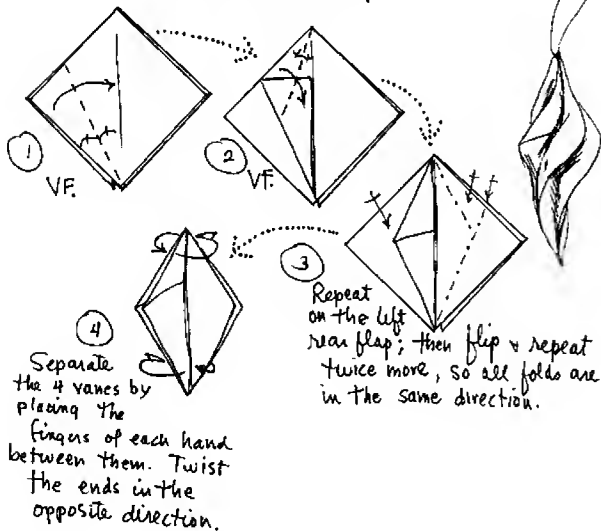 1
VF.
2
VF.
3
Repeat
on the left
rear flap; then flip & repeat
twice more, so all folds are
in the same direction.
4
Separate
the 4 vanes by
placing the
fingers of each hand
between them. Twist
the ends in the
opposite direction.